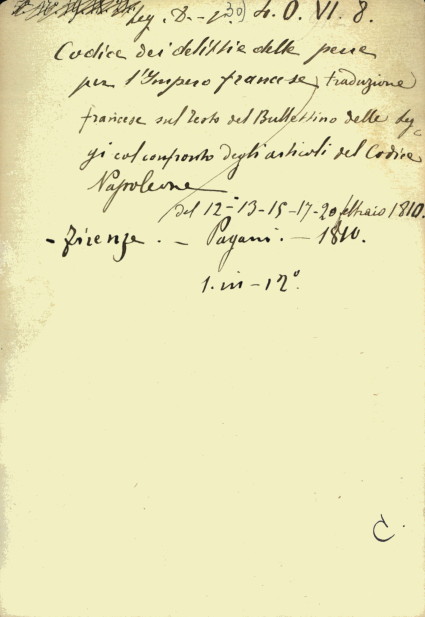 Leg. D. - 2 30) 4. O. VI. 8.
Codice dei delitti e delle pene
per l'Impero francese, traduzione
francese sul testo del Bullettino delle leg-
gi col confronto degli articoli del Codice
Napoleone
del 12-13-15-17-20 febbraio 1810.
- Firenze. - Pagani. - 1810.
1. in - 12°.
C.